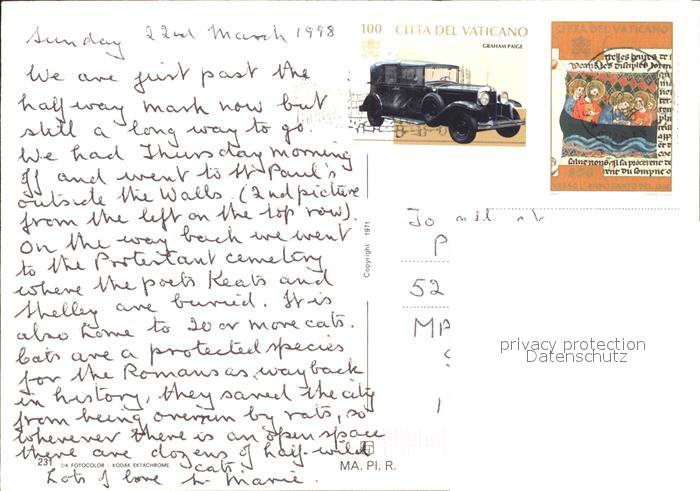 Sunday 22nd March 1998
We are just past the
half way mark now but
still a long way to go.
We had Thursday morning
off and went to St Paul's
outside the Walls (2nd picture
from the left on the top row).
On the way back we went
to the Protestant cemetery
where the poets Keats and
Shelley are buried. It is
also home to 20 or more cats.
Cats are a protected species
for the Romans as, way back
in history, they saved the city
from being overrun by rats, so
wherever there is an open space
there are dozens of half-wild
cats.
Lots of love Marie.
231 DA FOTOCOLOR - KODAK EKTACHROME
MA. PI. R.
Copyright 1971
100 CITTA DEL VATICANO
GRAHAM PAIGE
CITTA DEL VATICANO
To all at
P
52
MA
privacy protection
Datenschutz